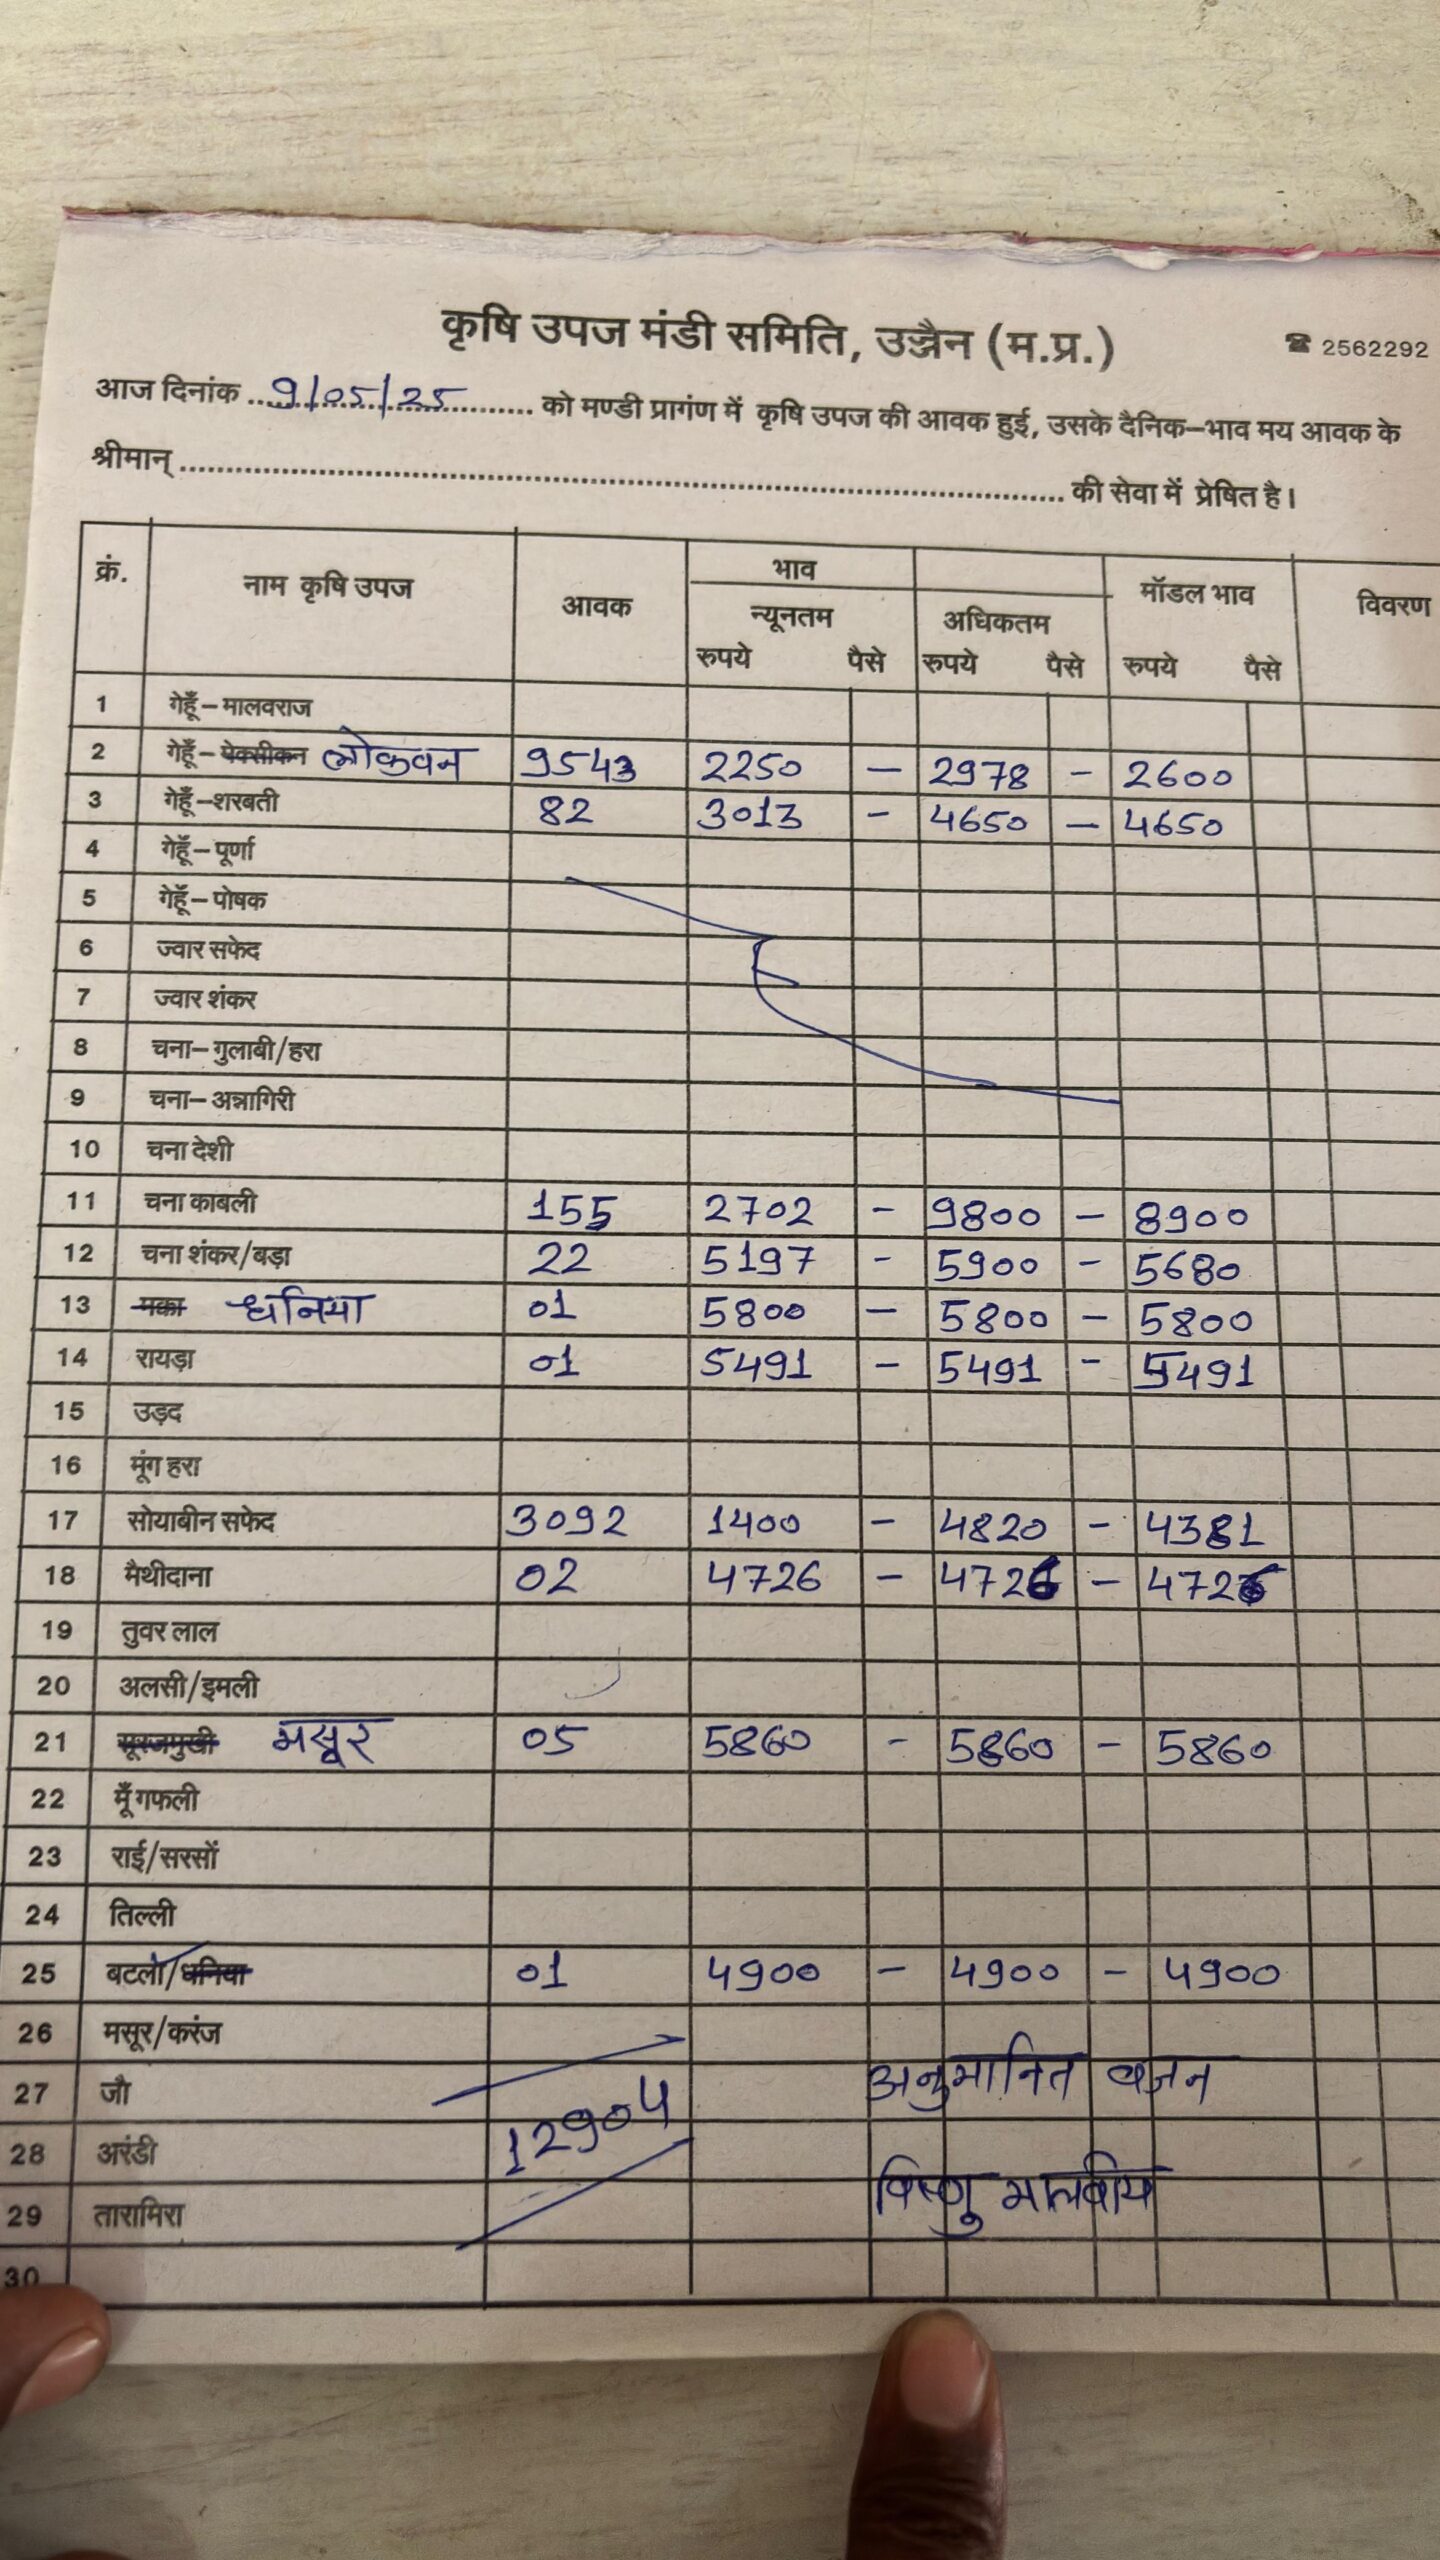 कृषि उपज मंडी समिति, उज्जैन (म.प्र.) ☎ 2562292
आज दिनांक 9/05/25 को मण्डी प्रागंण में कृषि उपज की आवक हुई, उसके दैनिक–भाव मय आवक के
श्रीमान् की सेवा में प्रेषित है।
क्रं. नाम कृषि उपज आवक भाव मॉडल भाव विवरण
न्यूनतम अधिकतम
रुपये पैसे रुपये पैसे रुपये पैसे
1 गेहूँ–मालवराज
2 गेहूँ–मेक्सीकन लोकवन 9543 2250 – 2978 – 2600
3 गेहूँ–शरबती 82 3013 – 4650 – 4650
4 गेहूँ–पूर्णा
5 गेहूँ–पोषक
6 ज्वार सफेद
7 ज्वार शंकर
8 चना–गुलाबी/हरा
9 चना–अन्नागिरी
10 चना देशी
11 चना काबली 155 2702 – 9800 – 8900
12 चना शंकर/बड़ा 22 5197 – 5900 – 5680
13 मका धनिया 01 5800 – 5800 – 5800
14 रायड़ा 01 5491 – 5491 – 5491
15 उड़द
16 मूंग हरा
17 सोयाबीन सफेद 3092 1400 – 4820 – 4381
18 मैथीदाना 02 4726 – 4726 – 4726
19 तुवर लाल
20 अलसी/इमली
21 सूरजमुखी मसूर 05 5860 – 5860 – 5860
22 मूँगफली
23 राई/सरसों
24 तिल्ली
25 बटला/धनिया 01 4900 – 4900 – 4900
26 मसूर/करंज
27 जौ अनुमानित वजन
28 अरंडी 12904
29 तारामिरा विष्णु मालवीय
30